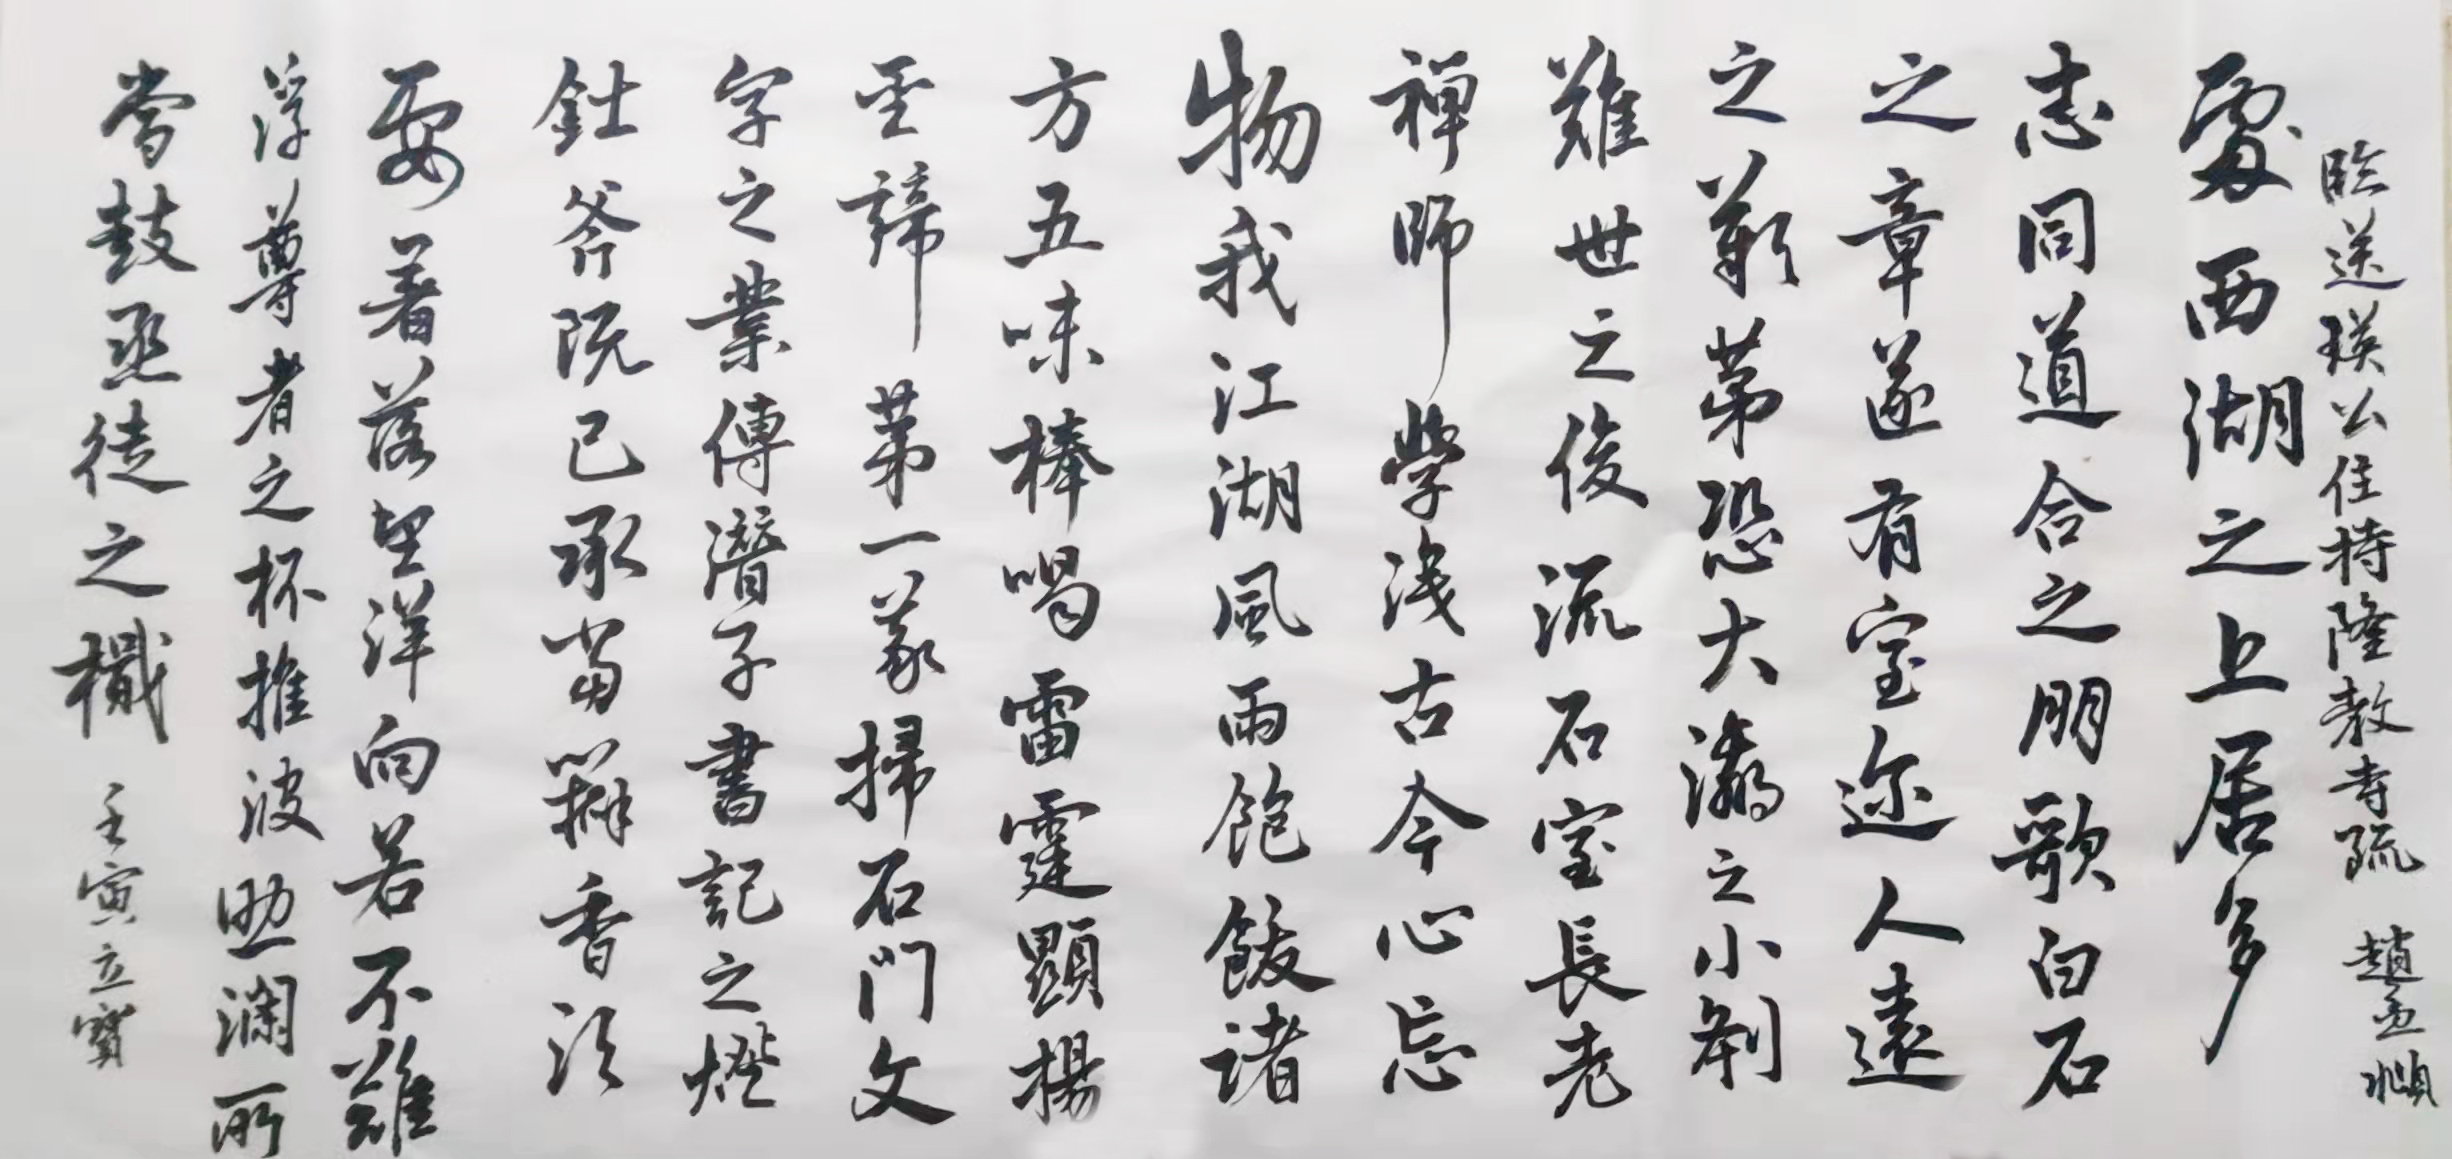 臨送瑛公住持隆教寺疏 趙孟頫
處西湖之上居多
志同道合之朋歌白石
之章遂有室迩人遠
之歎苐恐大瀛之小剎
難世之俊流石室長老
禅師學淺古今心忘
物我江湖風雨飽飯諸
方五味棒喝雷霆顯揚
至諦苐一義掃石門文
字之業傳潛子書記之燈
鈯斧既已承當瓣香須
要着落望洋向若不難
浮尊者之杯推波助瀾所
當鼓烝徒之檝 壬寅立寶